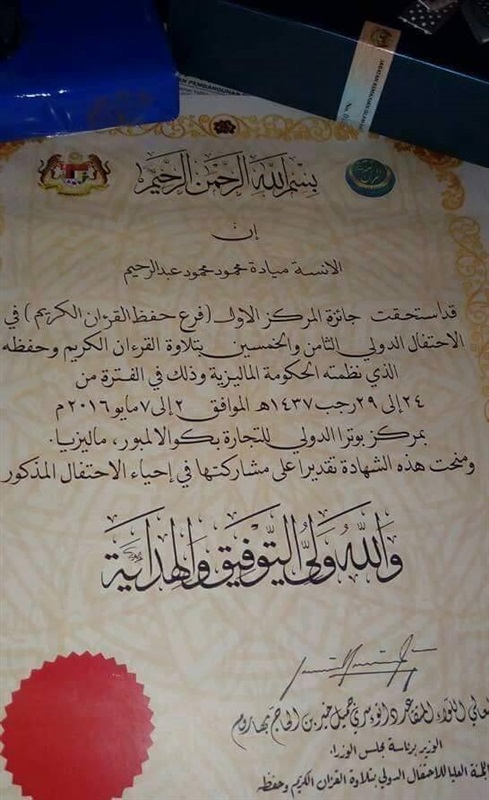 EN PEMBANGUNAN
JABATAN KEMAJUAN ISLAM
بسم الله الرحمن الرحيم
إن
الانسة ميادة محمود محمود عبدالرحيم
قد استحقت جائزة المركز الاول (فرع حفظ القرءان الكريم) في
الاحتفال الدولي الثامن والخمسين بتلاوة القرءان الكريم وحفظه
الذي نظمته الحكومة الماليزية وذلك في الفترة من
٢٤ إلى ٢٩ رجب ١٤٣٧هـ الموافق ٢ إلى ٧ مايو ٢٠١٦م
بمركز بوترا الدولي للتجارة بكوالالمبور، ماليزيا.
ومنحت هذه الشهادة تقديرا على مشاركتها في إحياء الاحتفال المذكور
والله ولي التوفيق والهداية
معالي اللواء المتقاعد داتوء سري جميل خير بن الحاج بهاروم
الوزير برئاسة مجلس الوزراء
اللجنة العليا للاحتفال الدولي بتلاوة القرءان الكريم وحفظه